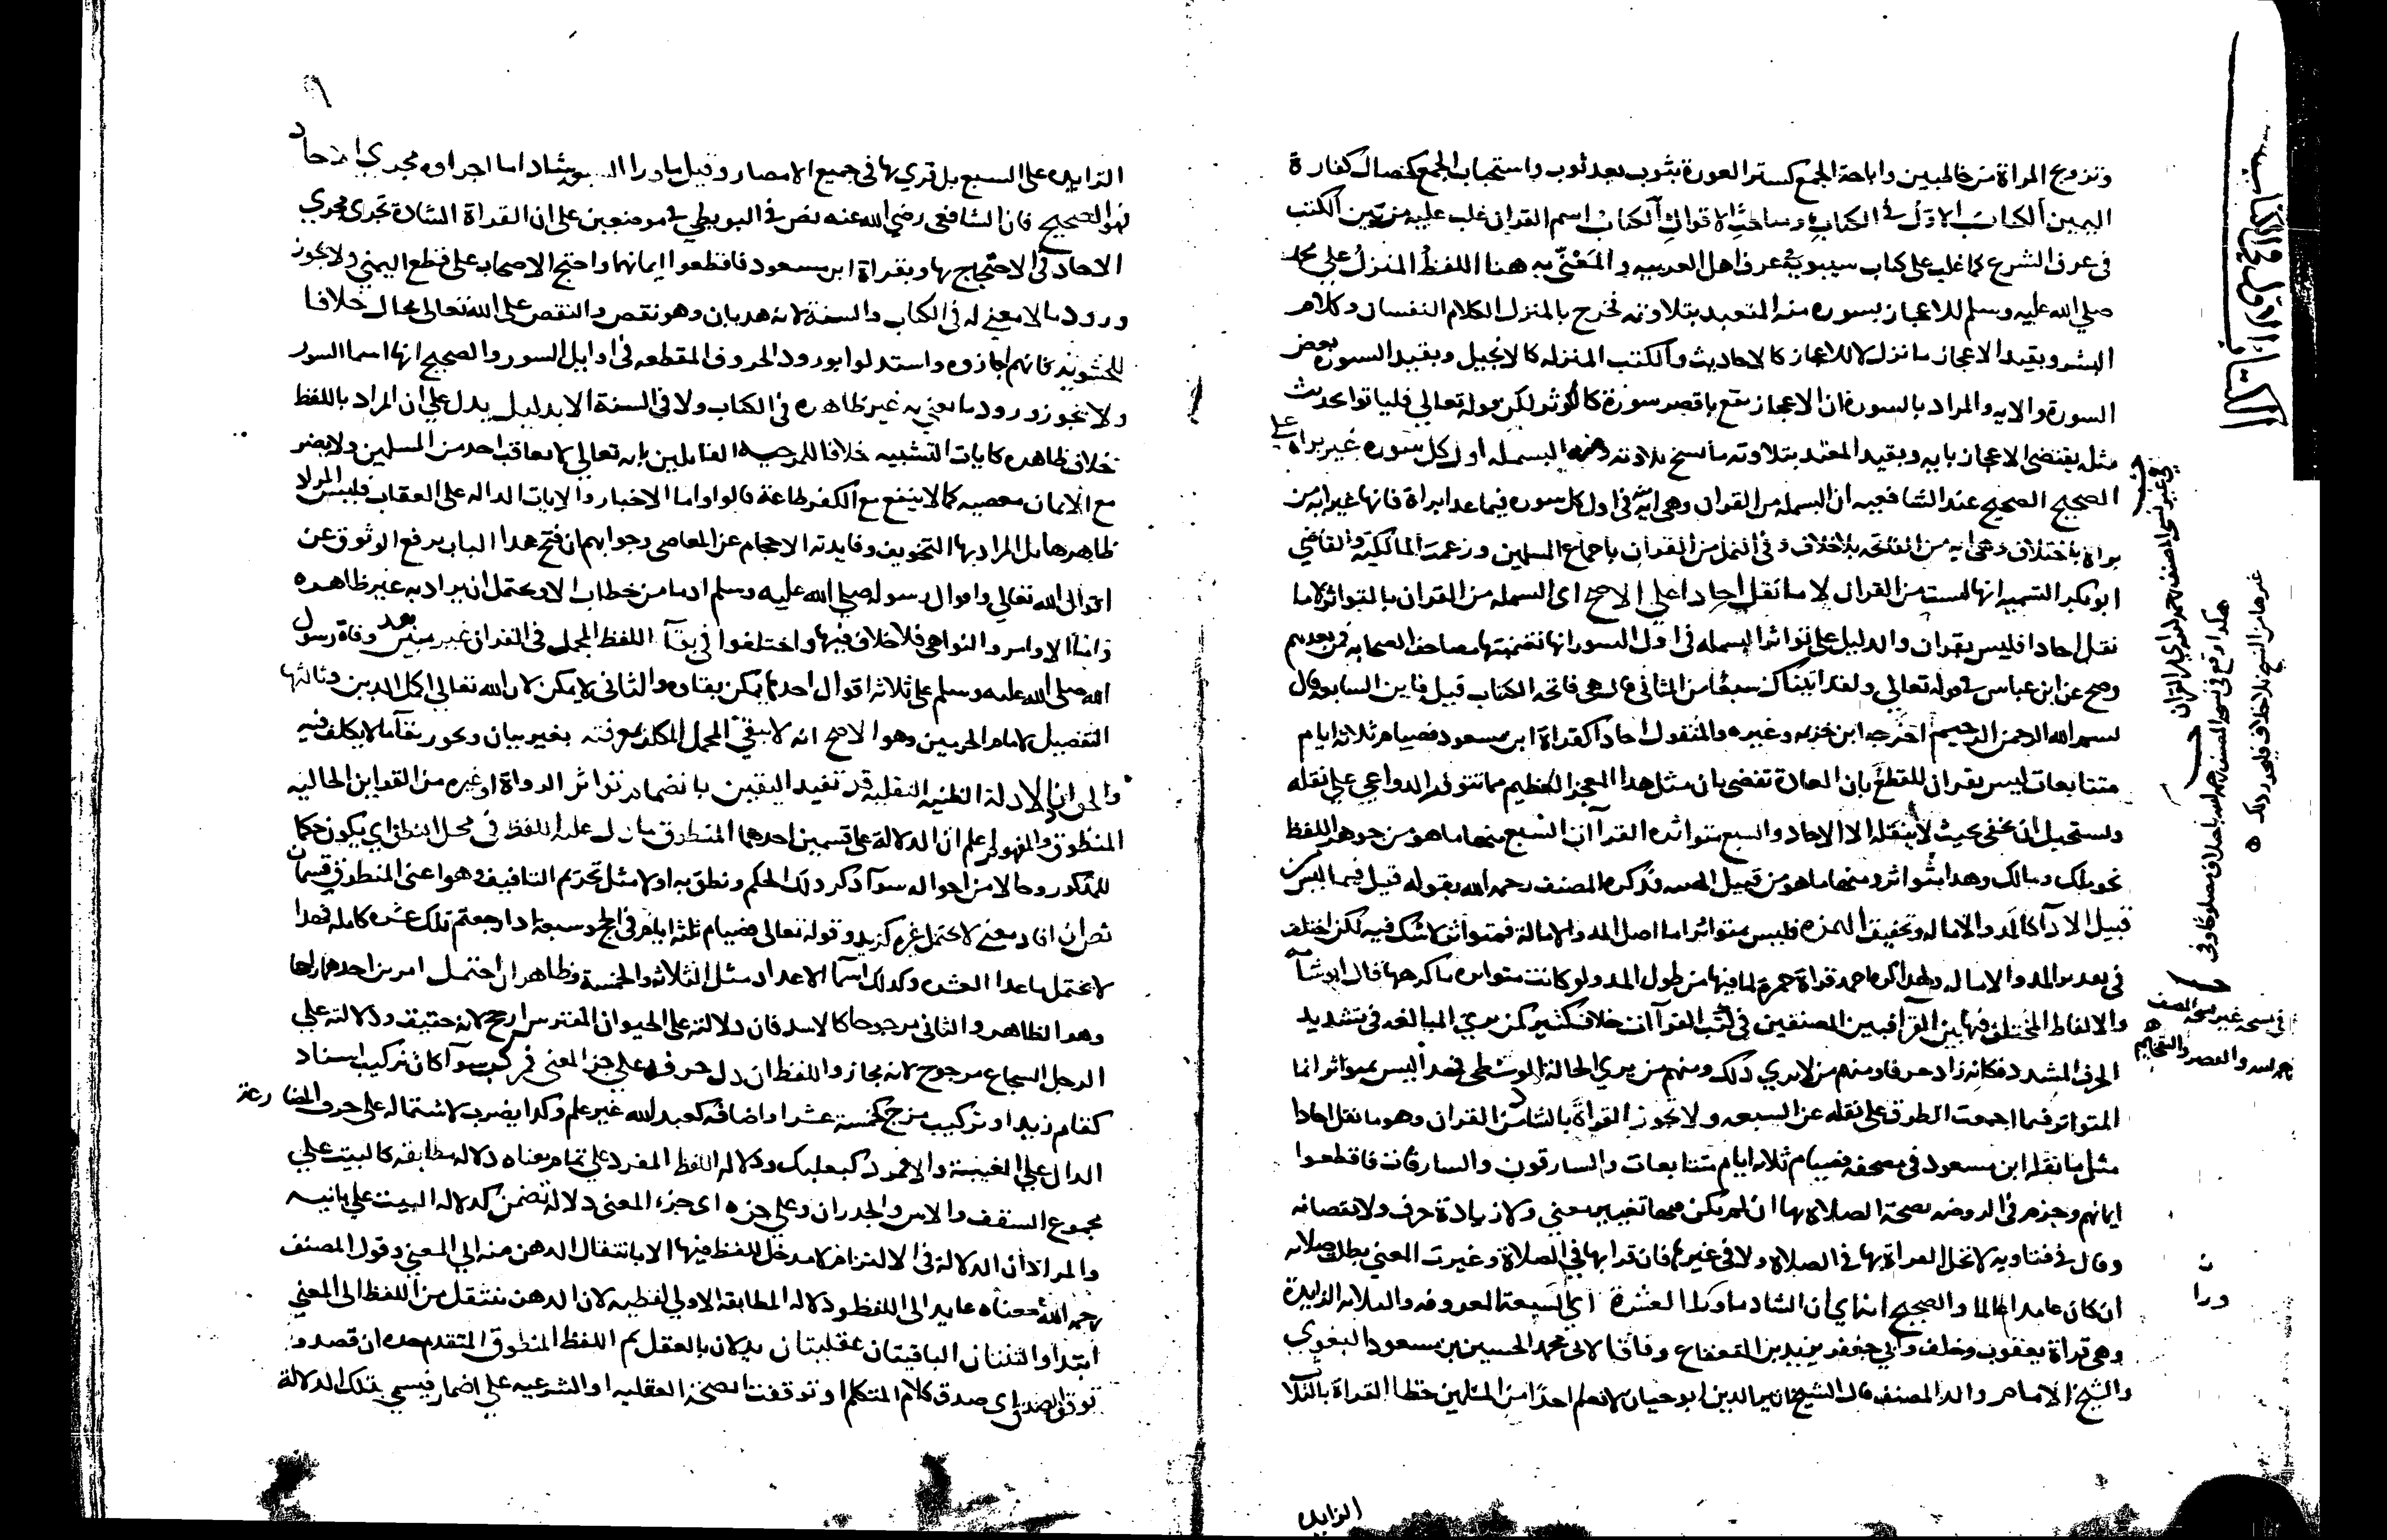 وتزويج المراة من خاطبين واباحة الجمع كستر العورة بثوب بعد ثوب واستحباب الجمع كخصال كفارة
اليمين الكتاب الاول في الكتاب ومباحث الاقوال الكتاب اسم القران غلب عليه من بين الكتب
في عرف الشرع كما غلب على كتاب سيبويه في عرف اهل العربيه والمعني به هنا اللفظ المنزل على محمد
صلي الله عليه وسلم للاعجاز بسوره منه المتعبد بتلاوته فخرج بالمنزل الكلام النفساني وكلام
البشر وبقيد الاعجاز ما نزل لا للاعجاز كالاحاديث والكتب المنزله كالانجيل وبقيد السوره بعض
السورة والايه والمراد بالسورة ان الاعجاز يقع باقصر سورة كالكوثر لكن قوله تعالي فلياتوا بحديث
مثله يقتضى الاعجاز بايه وبقيد المتعبد بتلاوته ما نسخ تلاوته ومنه البسمله اول كل سوره غير براه على
الصحيح الصحيح عند الشافعيه ان البسمله من القران وهي ايه في اول كل سوره فيما عدا براة فانها غير ايه من
براه باختلاف وهي ايه من الفاتحه بلا خلاف وفي النمل من القران باجماع المسلمين وزعمت المالكية والقاضي
ابو بكر انها ليست من القران لا ما نقل احادا على الاصح اى البسمله من القران بالتواتر لا ما
نقل احادا فليس بقران والدليل على تواتر البسمله في اول السور انها تضمنتها مصاحف الصحابه فمن بعدهم
وصح عن ابن عباس في قوله تعالي ولقد اتيناك سبعا من المثاني قال هي فاتحه الكتاب قيل فاين السابعه قال
بسم الله الرحمن الرحيم اخرجه ابن خزيمه وغيره والمنقول احادا كقراة ابن مسعود فصيام ثلاثة ايام
متتابعات ليس بقران للقطع بان العادة تقضى بان مثل هذا المعجز العظيم مما تتوفر الدواعي علي نقله
ويستحيل ان يخفى بحيث لا ينقله الا الاحاد والسبع متواتره القراآت السبع منها ما هو من جوهر اللفظ
نحو ملك ومالك وهذا متواتر ومنها ما هو من قبيل وقد ذكره المصنف رحمه الله بقوله قيل فيما ليس من
قبيل الادآ كالمد والاماله وتخفيف الهمزه فليس متواترا اما اصل المد والامالة فمتواتر لا شك فيه لكن اختلف
في المد والاماله ولهذا كره احمد قراة حمزة لما فيها من طول المد ولو كانت متواتره ما كرهها قال ابو شامه
والالفاظ المختلف فيها بين القرآ فبين المصنفين في كتب القرآات خلاف كثير كمن يري المبالغه في تشديد
الحرف المشدد فكانه زاد حرفا ومنهم من لا يري ذلك ومنهم من يري الحالة الوسطى فهذا ليس بمتواتر انما
المتواتر فيما اجمعت الطرق على نقله عن السبعه ولا تجوز القراة بالشاذ من القران وهو ما نقل احادا
مثل ما نقله ابن مسعود في مصحفه فصيام ثلاثه ايام متتابعات والسارقون والسارقات فاقطعوا
ايمانهم وجزم في الروضه بصحة الصلاة بها ان لم يكن فيها تغيير معني ولا زيادة حرف ولا نقصانه
وقال في فتاويه لا تحل القراة بها في الصلاة ولا في غيرها فان قرا بها في الصلاة وغيرت المعني بطلت صلاته
ان كان عامدا عالما والصحيح انه اي ان الشاذ ما ورا العشرة اي السبعة المعروفه والثلاثه الزايدة
وهي قراة يعقوب وخلف وابي جعفر يزيد بن القعقاع وفاقا لابي محمد الحسين بن مسعود البغوي
والشيخ الامام والد المصنف قال الشيخ اثير الدين ابو حيان لا نعلم احدا من المسلمين حظر القراة بالثلاث
الزايده
الكتاب الاول في الكتاب
الزايده على السبع بل قري بها في جميع الامصار وقيل ما ورا السبعه شاذ اما اجراوه مجرى الاحاد
فهو الصحيح فان الشافعى رضي الله عنه نص في البويطي في موضعين على ان القراة الشاذة تجرى مجري
الاحاد في الاحتجاج بها وبقراة ابن مسعود فاقطعوا ايمانهما واحتج الاصحاب على قطع اليمني ولا يجوز
ورود ما لا معني له في الكتاب والسنة لانه هذيان وهو نقص والنقص على الله تعالى محال خلافا
للحشويه فانهم اجازوه واستدلوا بورود الحروف المقطعه في اوايل السور والصحيح انها اسما السور
ولا يجوز ورود ما يعني به غير ظاهره في الكتاب ولا في السنة الا بدليل يدل علي ان المراد باللفظ
خلاف ظاهره كايات التشبيه خلافا للمرجيه القايلين بانه تعالي لا يعاقب احد من المسلمين ولا يضر
مع الايمان معصيه كما لا ينفع مع الكفر طاعة قالوا واما الاخبار والايات الداله على العقاب فليس المراد
ظاهرها بل المراد بها التخويف وفايدته الاحجام عن المعاصي وجوابهم ان فتح هذا الباب يرفع الوثوق عن
اقوال الله تعالي واقوال رسوله صلي الله عليه وسلم اذ ما من خطاب الا ويحتمل ان يراد به غير ظاهره
واما الاوامر والنواهي فلا خلاف فيها واختلفوا في بقآ اللفظ المجمل في القران غير مبين بعد وفاة رسول
الله صلى الله عليه وسلم على ثلاثه اقوال احدها يمكن بقاوه والثاني لا يمكن لان الله تعالي اكمل الدين وثالثها
التفصيل لامام الحرمين وهو الاصح انه لا يبقى المجمل المكلف بمعرفته بغير بيان ويجوز بقآ ما لا يكلف فيه
والحق ان الادلة الظنيه النقليه قد تفيد اليقين بانضمام تواتر الرواة او غيره من القراين الحاليه
المنطوق والمفهوم اعلم ان الدلالة على قسمين احدهما المنطوق ما دل عليه اللفظ في محل النطق اي يكون حكما
للمذكور وحالا من احواله سوآ ذكر ذلك الحكم ونطق به اولا مثل تحريم التافيف وهو اعنى المنطوق قسمان
نص ان افاد معني لا يحتمل غيره كزيد وقوله تعالى فصيام ثلثة ايام في الحج وسبعة اذا رجعتم تلك عشره كامله فهذا
لا يحتمل ما عدا العشره وكذلك اسمآ الاعداد مثل الثلاثه والخمسة وظاهر ان احتمل امرين احدهما راجحا
وهو الظاهر والثاني مرجوحا كالاسد فان دلالته على الحيوان المفترس ارجح لانه حقيقه ودلالته علي
الرجل الشجاع مرجوح لانه مجاز واللفظ ان دل جزوه علي جز المعني فمركب سوآ كان تركيب اسناد
كقام زيد او تركيب مزج كخمسة عشر او اضافه كعبد لله غير علم وكذا يضرب لاشتماله على حرف المضارعة
الدال علي الغيبة والا فمفرد كبعلبك ودلاله اللفظ المفرد علي تمام معناه دلاله مطابقه كالبيت علي
مجموع السقف والاس والجدران وعلي جزه اى جزء المعني دلالة تضمن كدلاله البيت علي بانيه
والمراد ان الدلالة في الالتزام لا مدخل للفظ فيها الا بانتقال الذهن منه الي المعني وقول المصنف
رحمه الله معناه عايد الى اللفظ ودلاله المطابقة الاولي لفظيه لان الذهن ينتقل من اللفظ الى المعني
ابتدآ والثنتان الباقيتان عقليتان يدلان بالعقل ثم اللفظ المنطوق المتقدم حده ان قصد و
توقف الصدق اي صدق كلام المتكلم او توقفت الصحة العقليه او الشرعيه علي اضمار فيسمي بتلك الدلالة